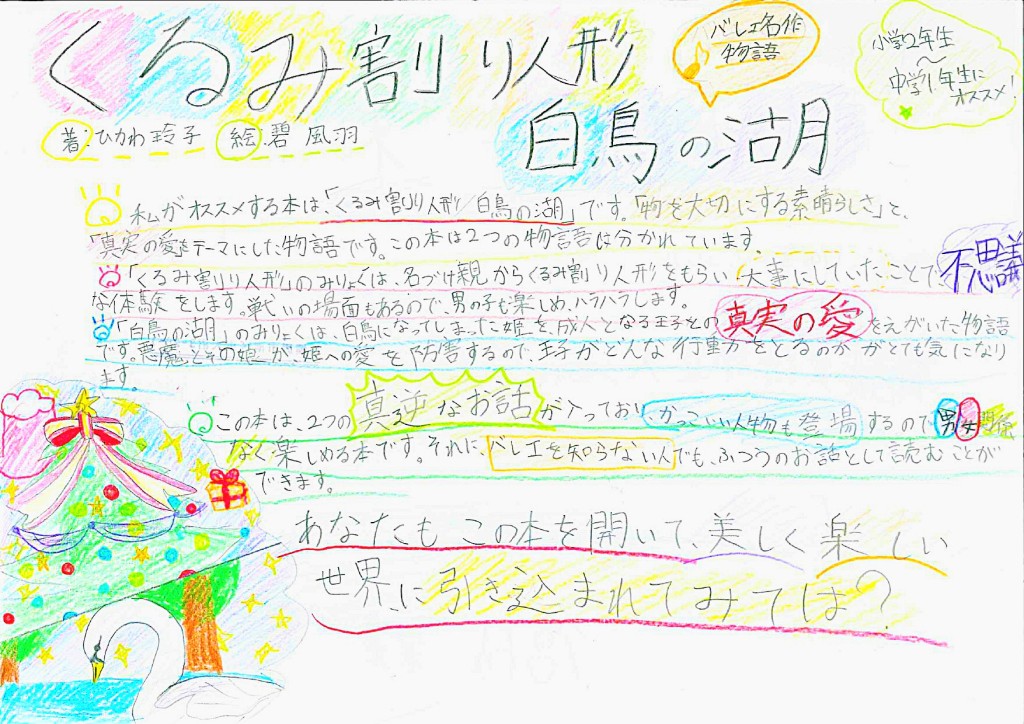 くるみ割り人形
白鳥の湖
バレエ名作
物語
小学2年生
~
中学1年生に
オススメ!
著:ひかわ玲子 絵:碧 風羽
私がオススメする本は、「くるみ割り人形/白鳥の湖」です。「物を大切にする素晴らしさ」と、
「真実の愛」をテーマにした物語です。この本は2つの物語に分かれています。
「くるみ割り人形」のみりょくは、名づけ親からくるみ割り人形をもらい、大事にしていたことで、不思議
な体験をします。戦いの場面もあるので、男の子も楽しめ、ハラハラします。
「白鳥の湖」のみりょくは、白鳥になってしまった姫を、成人となる王子との真実の愛をえがいた物語
です。悪魔とその娘が、姫への愛を防害するので、王子がどんな行動をとるのかがとても気になり
ます。
この本は、2つの真逆なお話が入っており、かっこいい人物も登場するので、男女関係
なく楽しめる本です。それに、バレエを知らない人でも、ふつうのお話として読むことが
できます。
あなたもこの本を開いて、美しく楽しい
世界に引き込まれてみては?